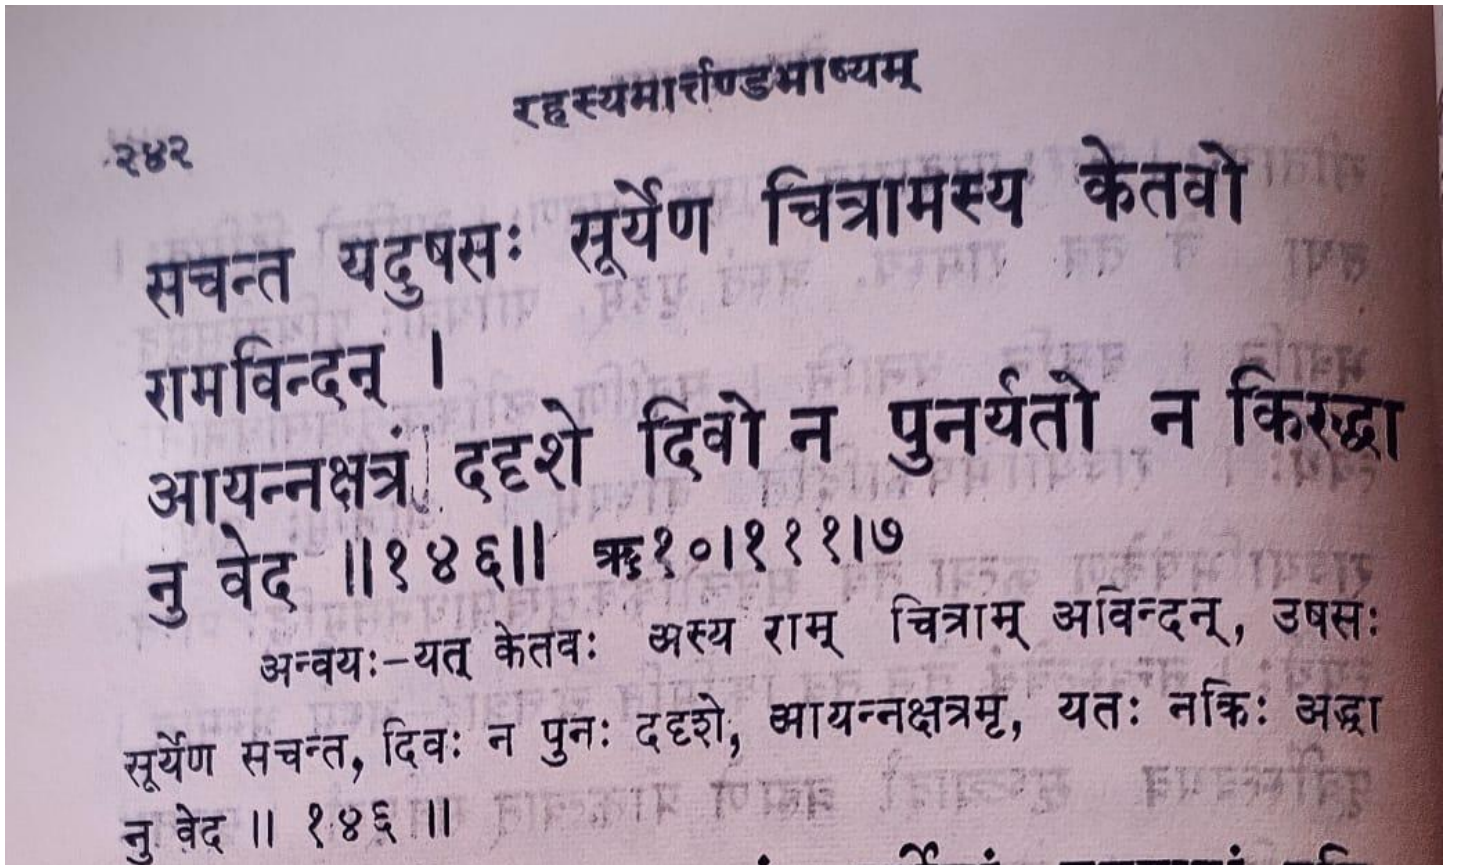 रहस्यमार्त्तण्डभाष्यम्
२४२
सचन्त यदुषसः सूर्येण चित्रामस्य केतवो
रामविन्दन् ।
आयन्नक्षत्रं ददृशे दिवो न पुनर्यतो न किरद्धा
नु वेद ॥१४६॥ ऋ१०।१११।७
अन्वयः-यत् केतवः अस्य राम् चित्राम् अविन्दन्, उषसः
सूर्येण सचन्त, दिवः न पुनः ददृशे, आयन्नक्षत्रमृ, यतः नकिः अद्धा
नु वेद ॥ १४६ ॥